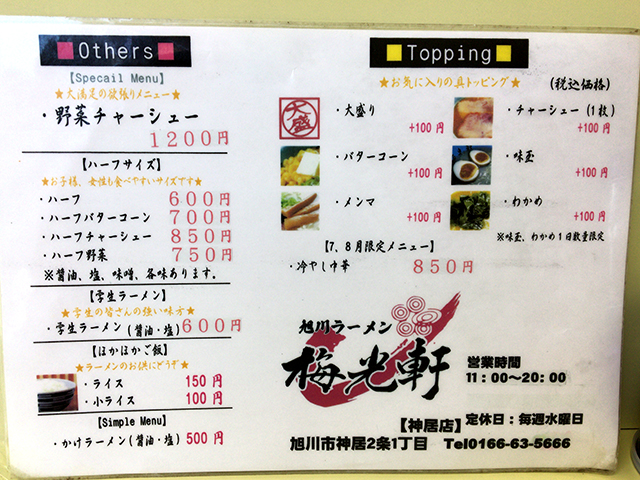 Others
【Specail Menu】
★大満足の欲張りメニュー★
・野菜チャーシュー
1200円
【ハーフサイズ】
★お子様、女性も食べやすいサイズです★
・ハーフ 600円
・ハーフバターコーン 700円
・ハーフチャーシュー 850円
・ハーフ野菜 750円
※醤油、塩、味噌、各味あります。
【学生ラーメン】
★学生の皆さんの強い味方★
・学生ラーメン(醤油・塩) 600円
【ほかほかご飯】
★ラーメンのお供にどうぞ★
・ライス 150円
・小ライス 100円
【Simple Menu】
・かけラーメン(醤油・塩) 500円
Topping
★お気に入りの具トッピング★ (税込価格)
大盛
・大盛り +100円
・チャーシュー(1枚) +100円
・バターコーン +100円
・味玉 +100円
・メンマ +100円
・わかめ +100円
※味玉、わかめ1日数量限定
【7、8月限定メニュー】
・冷やし中華 850円
旭川ラーメン
梅光軒
営業時間
11:00〜20:00
【神居店】 定休日:毎週水曜日
旭川市神居2条1丁目 Tel0166-63-5666